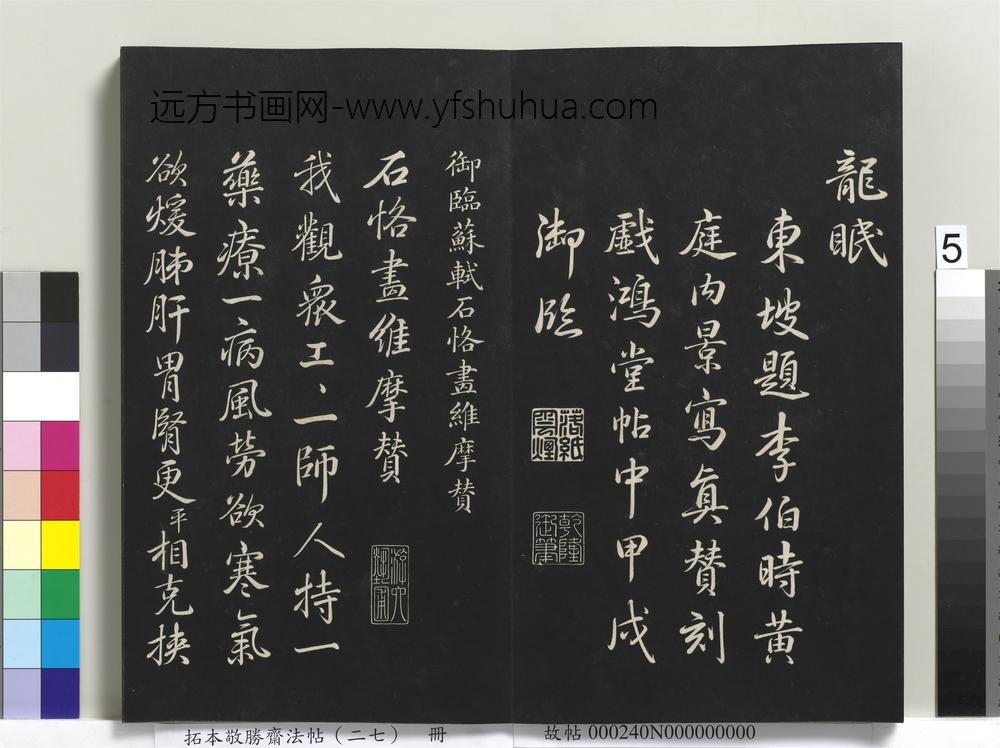 远方书画网-www.yfshuhua.com
龍眠
東坡題李伯時黃
庭內景寫真贊刻
戲鴻堂帖中甲戌
御臨
落紙雲煙
乾隆御筆
御臨蘇軾石恪畫維摩贊
石恪畫維摩贊
我觀衆工工一師人持一
藥療一病風勞欲寒氣
欲煖肺肝胃腎更平相克挾
5
拓本敬勝齋法帖（二七） 冊
故帖 000240N000000000